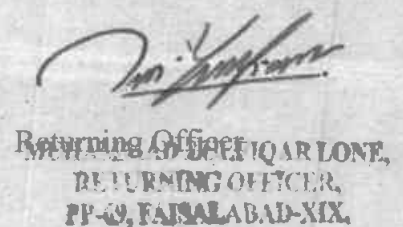 Returning Officer
ZULFIQAR LONE,
RETURNING OFFICER,
FAISALABAD-XIX.